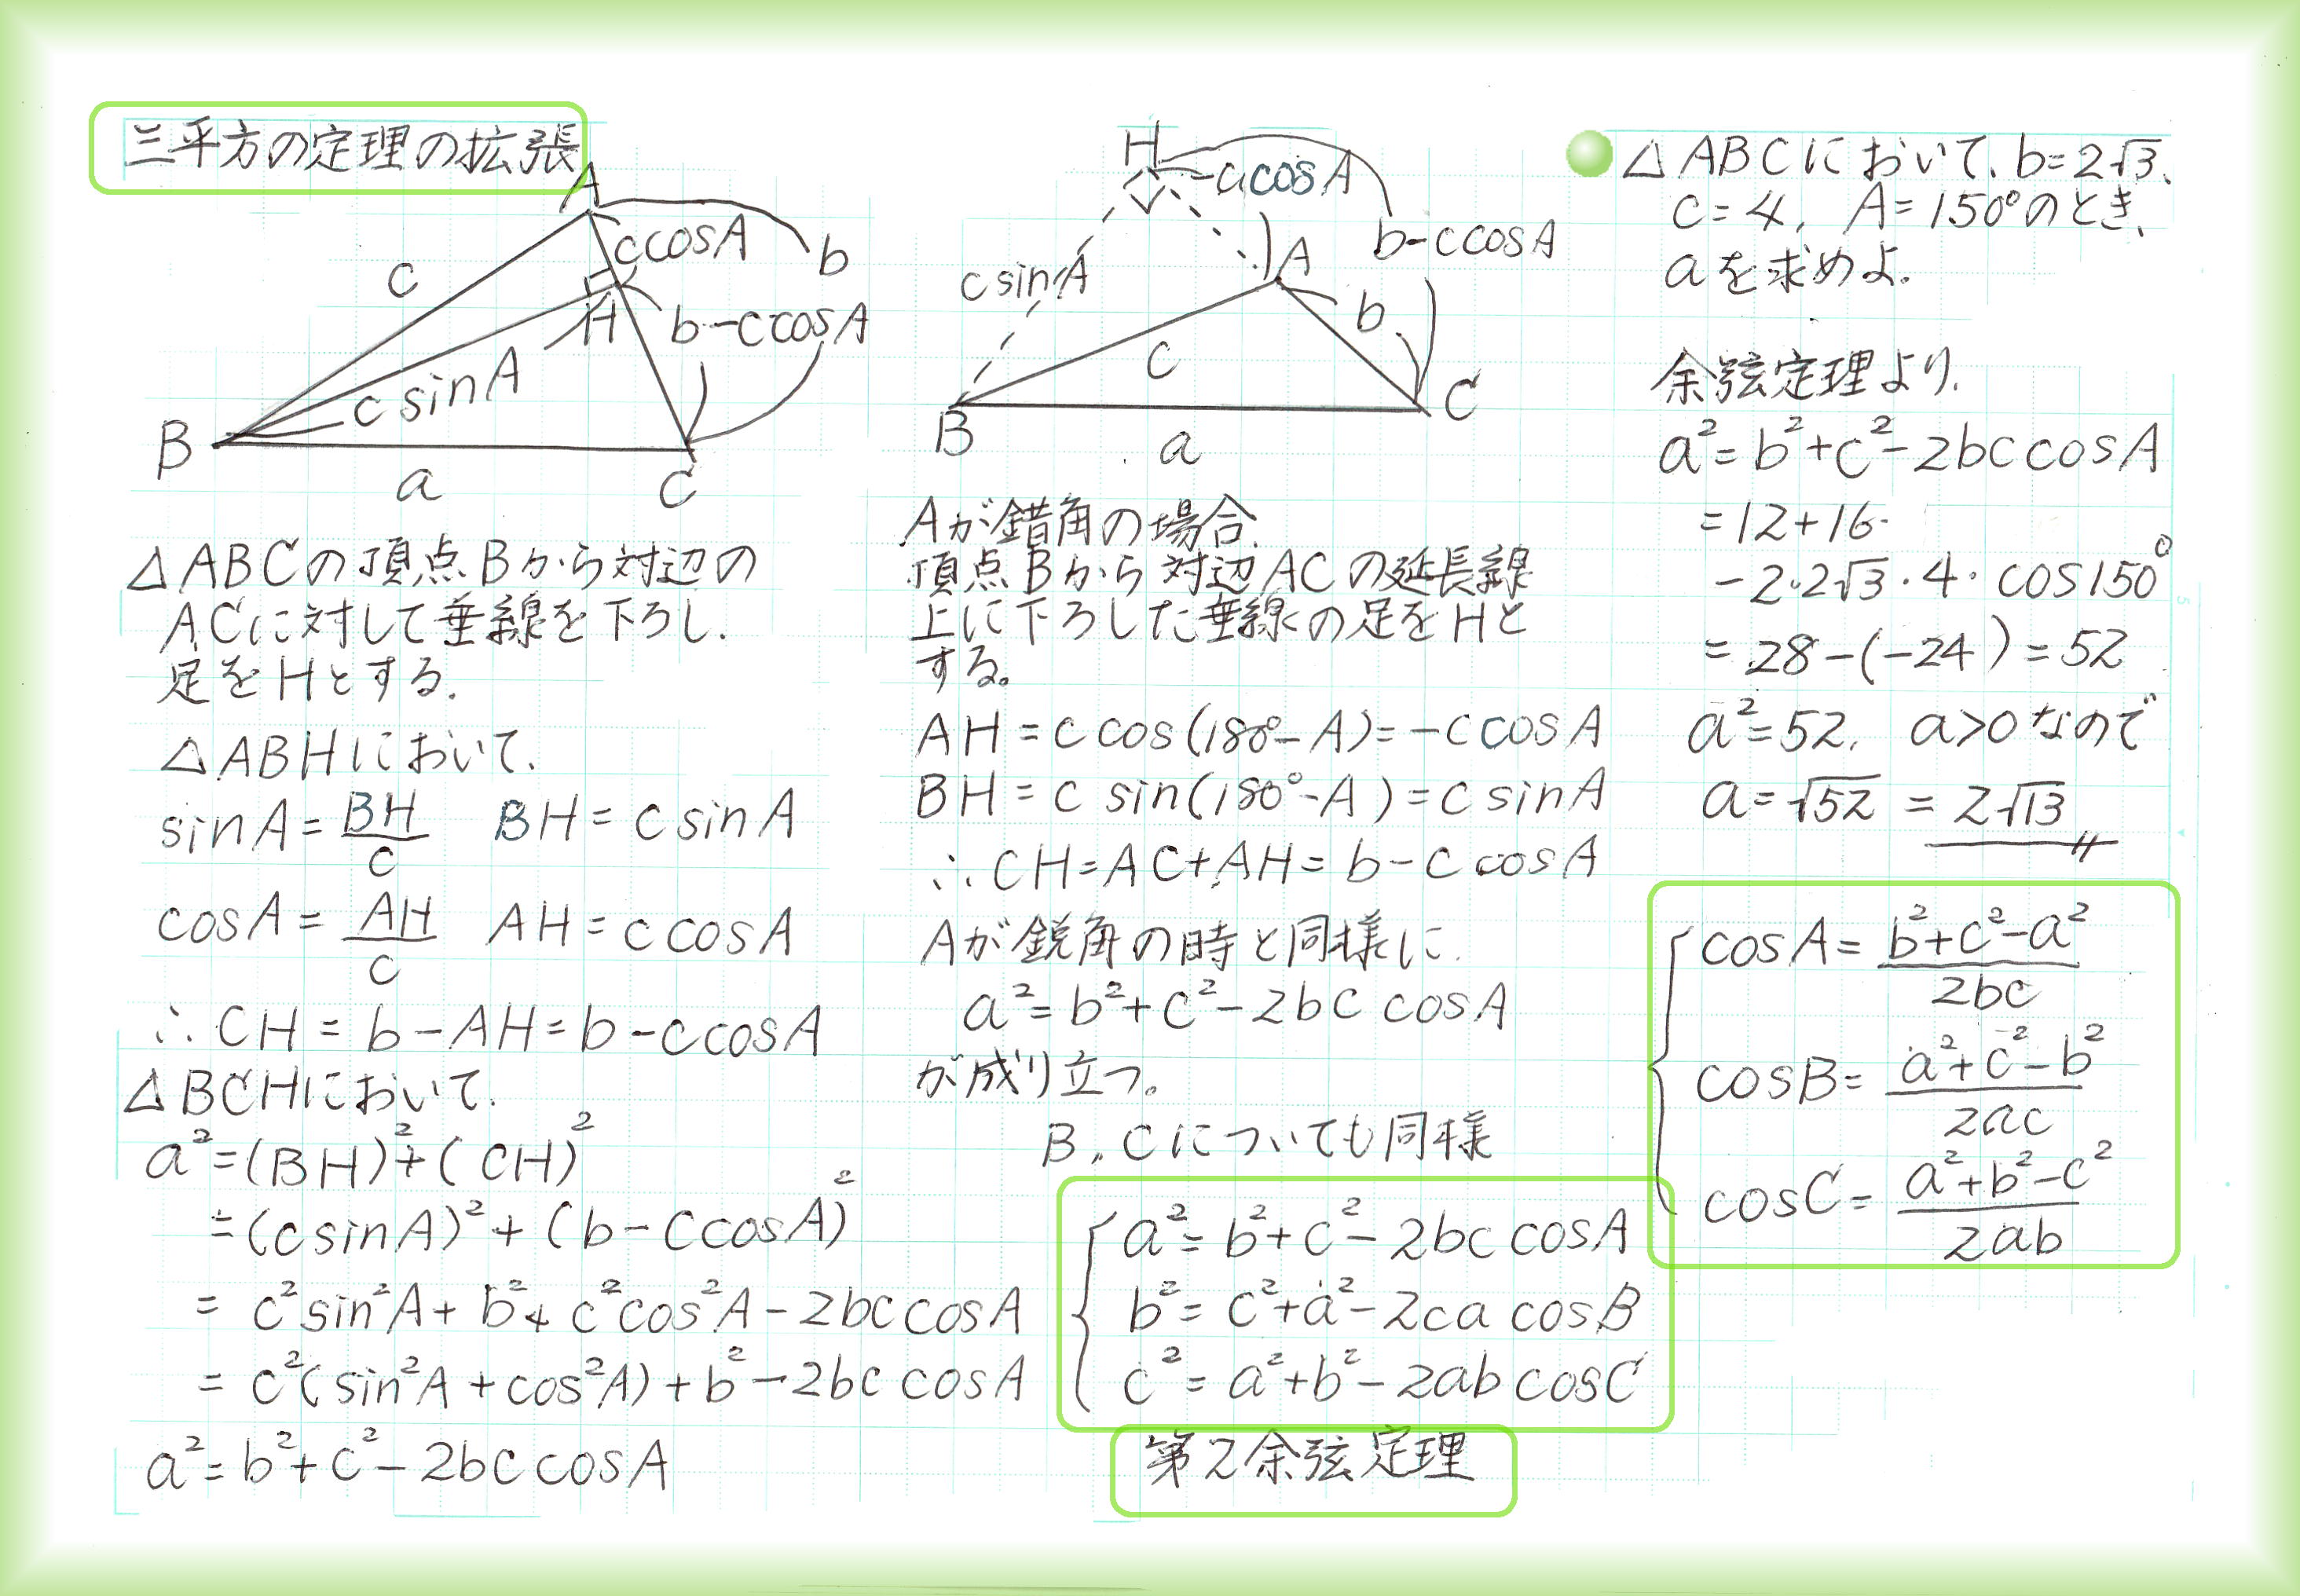 三平方の定理の拡張
A
c cosA
b
c
H
b-c cosA
c sinA
B
a
C
△ABCの頂点Bから対辺の
ACに対して垂線を下ろし.
足をHとする.
△ABHにおいて.
sinA=BH/c BH=c sinA
cosA=AH/c AH=c cosA
∴CH=b-AH=b-c cosA
△BCHにおいて.
a²=(BH)²+(CH)²
=(c sinA)²+(b-c cosA)²
=c²sin²A+b²+c²cos²A-2bc cosA
=c²(sin²A+cos²A)+b²-2bc cosA
a²=b²+c²-2bc cosA
H
b-c cosA
c sinA
A
b
c
B
C
a
Aが錯角の場合.
頂点Bから対辺ACの延長線
上に下ろした垂線の足をHと
する。
AH=c cos(180°-A)=-c cosA
BH=c sin(180°-A)=c sinA
∴CH=AC+AH=b-c cosA
Aが鋭角の時と同様に.
a²=b²+c²-2bc cosA
が成り立つ。
B,Cについても同様
a²=b²+c²-2bc cosA
b²=c²+a²-2ca cosB
c²=a²+b²-2ab cosC
第2余弦定理
△ABCにおいて、b=2√3、
c=4, A=150°のとき、
aを求めよ.
余弦定理より.
a²=b²+c²-2bc cosA
=12+16
-2·2√3·4·cos150°
=28-(-24)=52
a²=52, a>0なので
a=√52=2√13
cosA=b²+c²-a²/2bc
cosB=a²+c²-b²/2ac
cosC=a²+b²-c²/2ab